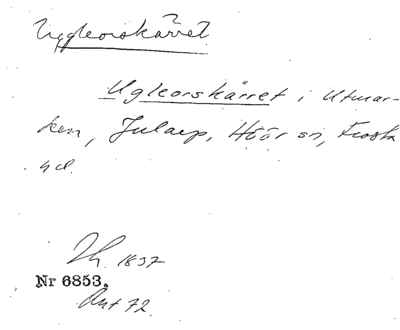 Uggleorskärret
Ugleorskärret i Utmar-
ken, Jularp, Höör sn, Frosta
hd.
Th. 1837
Nr 6853.
Akt 72.